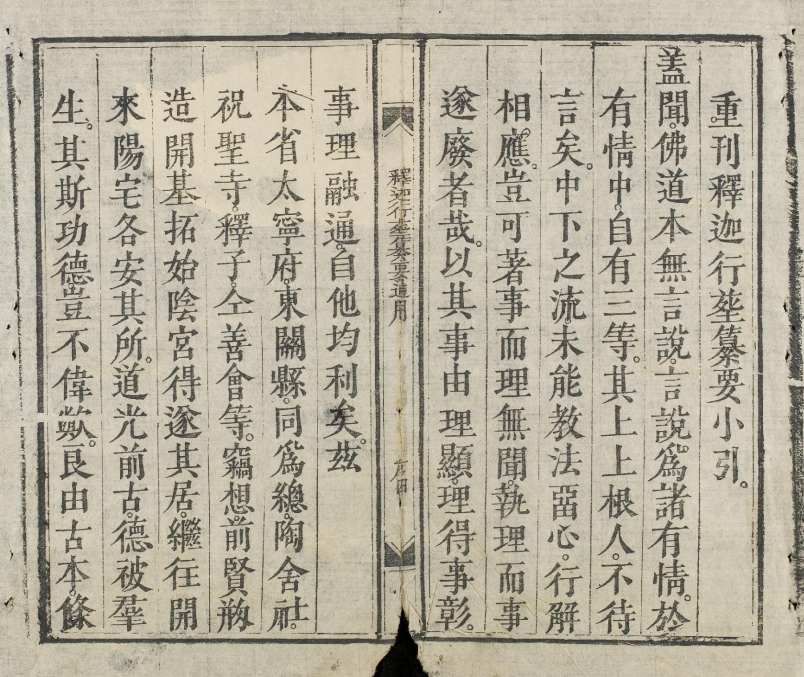 重刊釋迦行塟纂要小引。
蓋聞佛道本無言說。言說為諸有情。於
有情中。自有三等。其上上根人。不待
言矣。中下之流。未能教法㗁心。行解
相應。豈可著事而理無聞。執理而事
遂廢者哉。以其事由理顯。理得事彰。
釋迦行塟纂要道用
事理融通。自他均利矣。茲
本省太寧府。東關縣。同為總。陶舍社。
祝聖寺。釋子。仝善會等。竊想。前賢剏
造開基拓始。陰宮得遂其居。繼往開
來。陽宅各安其所。道光前古。德被羣
生。其斯功德豈不偉歟。良由古本。條